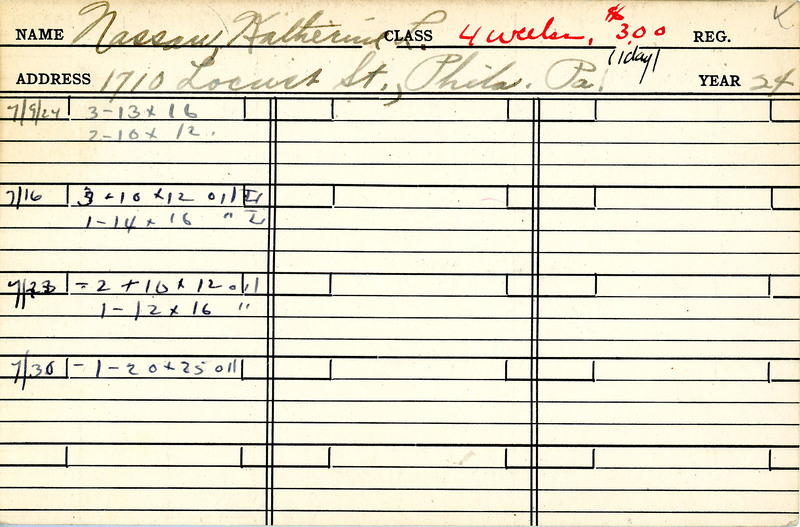 NAME Nassau, Katherine L. CLASS 4 weeks, $3.00 REG.
(1 day)
ADDRESS 1710 Locust St., Phila. Pa. YEAR 24
7/9/24 3-13 x 16
2-10 x 12.
7/16 3-10 x 12 oil II
1-14 x 16 " I
7/23 - 2 - 10 x 12 oil
1-12 x 16 "
7/30 - 1-20 x 25 oil